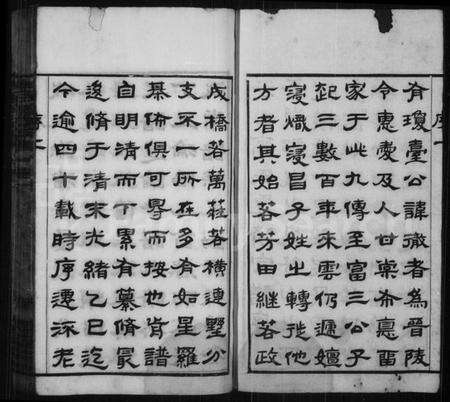 有瓊臺公諱徹者為晉陵
令惠愛及人世樂布悳留
家于此九傳至富三公子
起三數百年來雲仍遞嬗
寖熾寖昌子姓之轉徙他
方者其始若芳田繼若政
序一
成橋若萬莊若橫連墅分
支不一所在多有如星羅
棊佈俱可尋而按也肯譜
自明清而下累有纂脩最
後脩于清末光緒乙巳迄
今逾四十載時序遷流老
序二